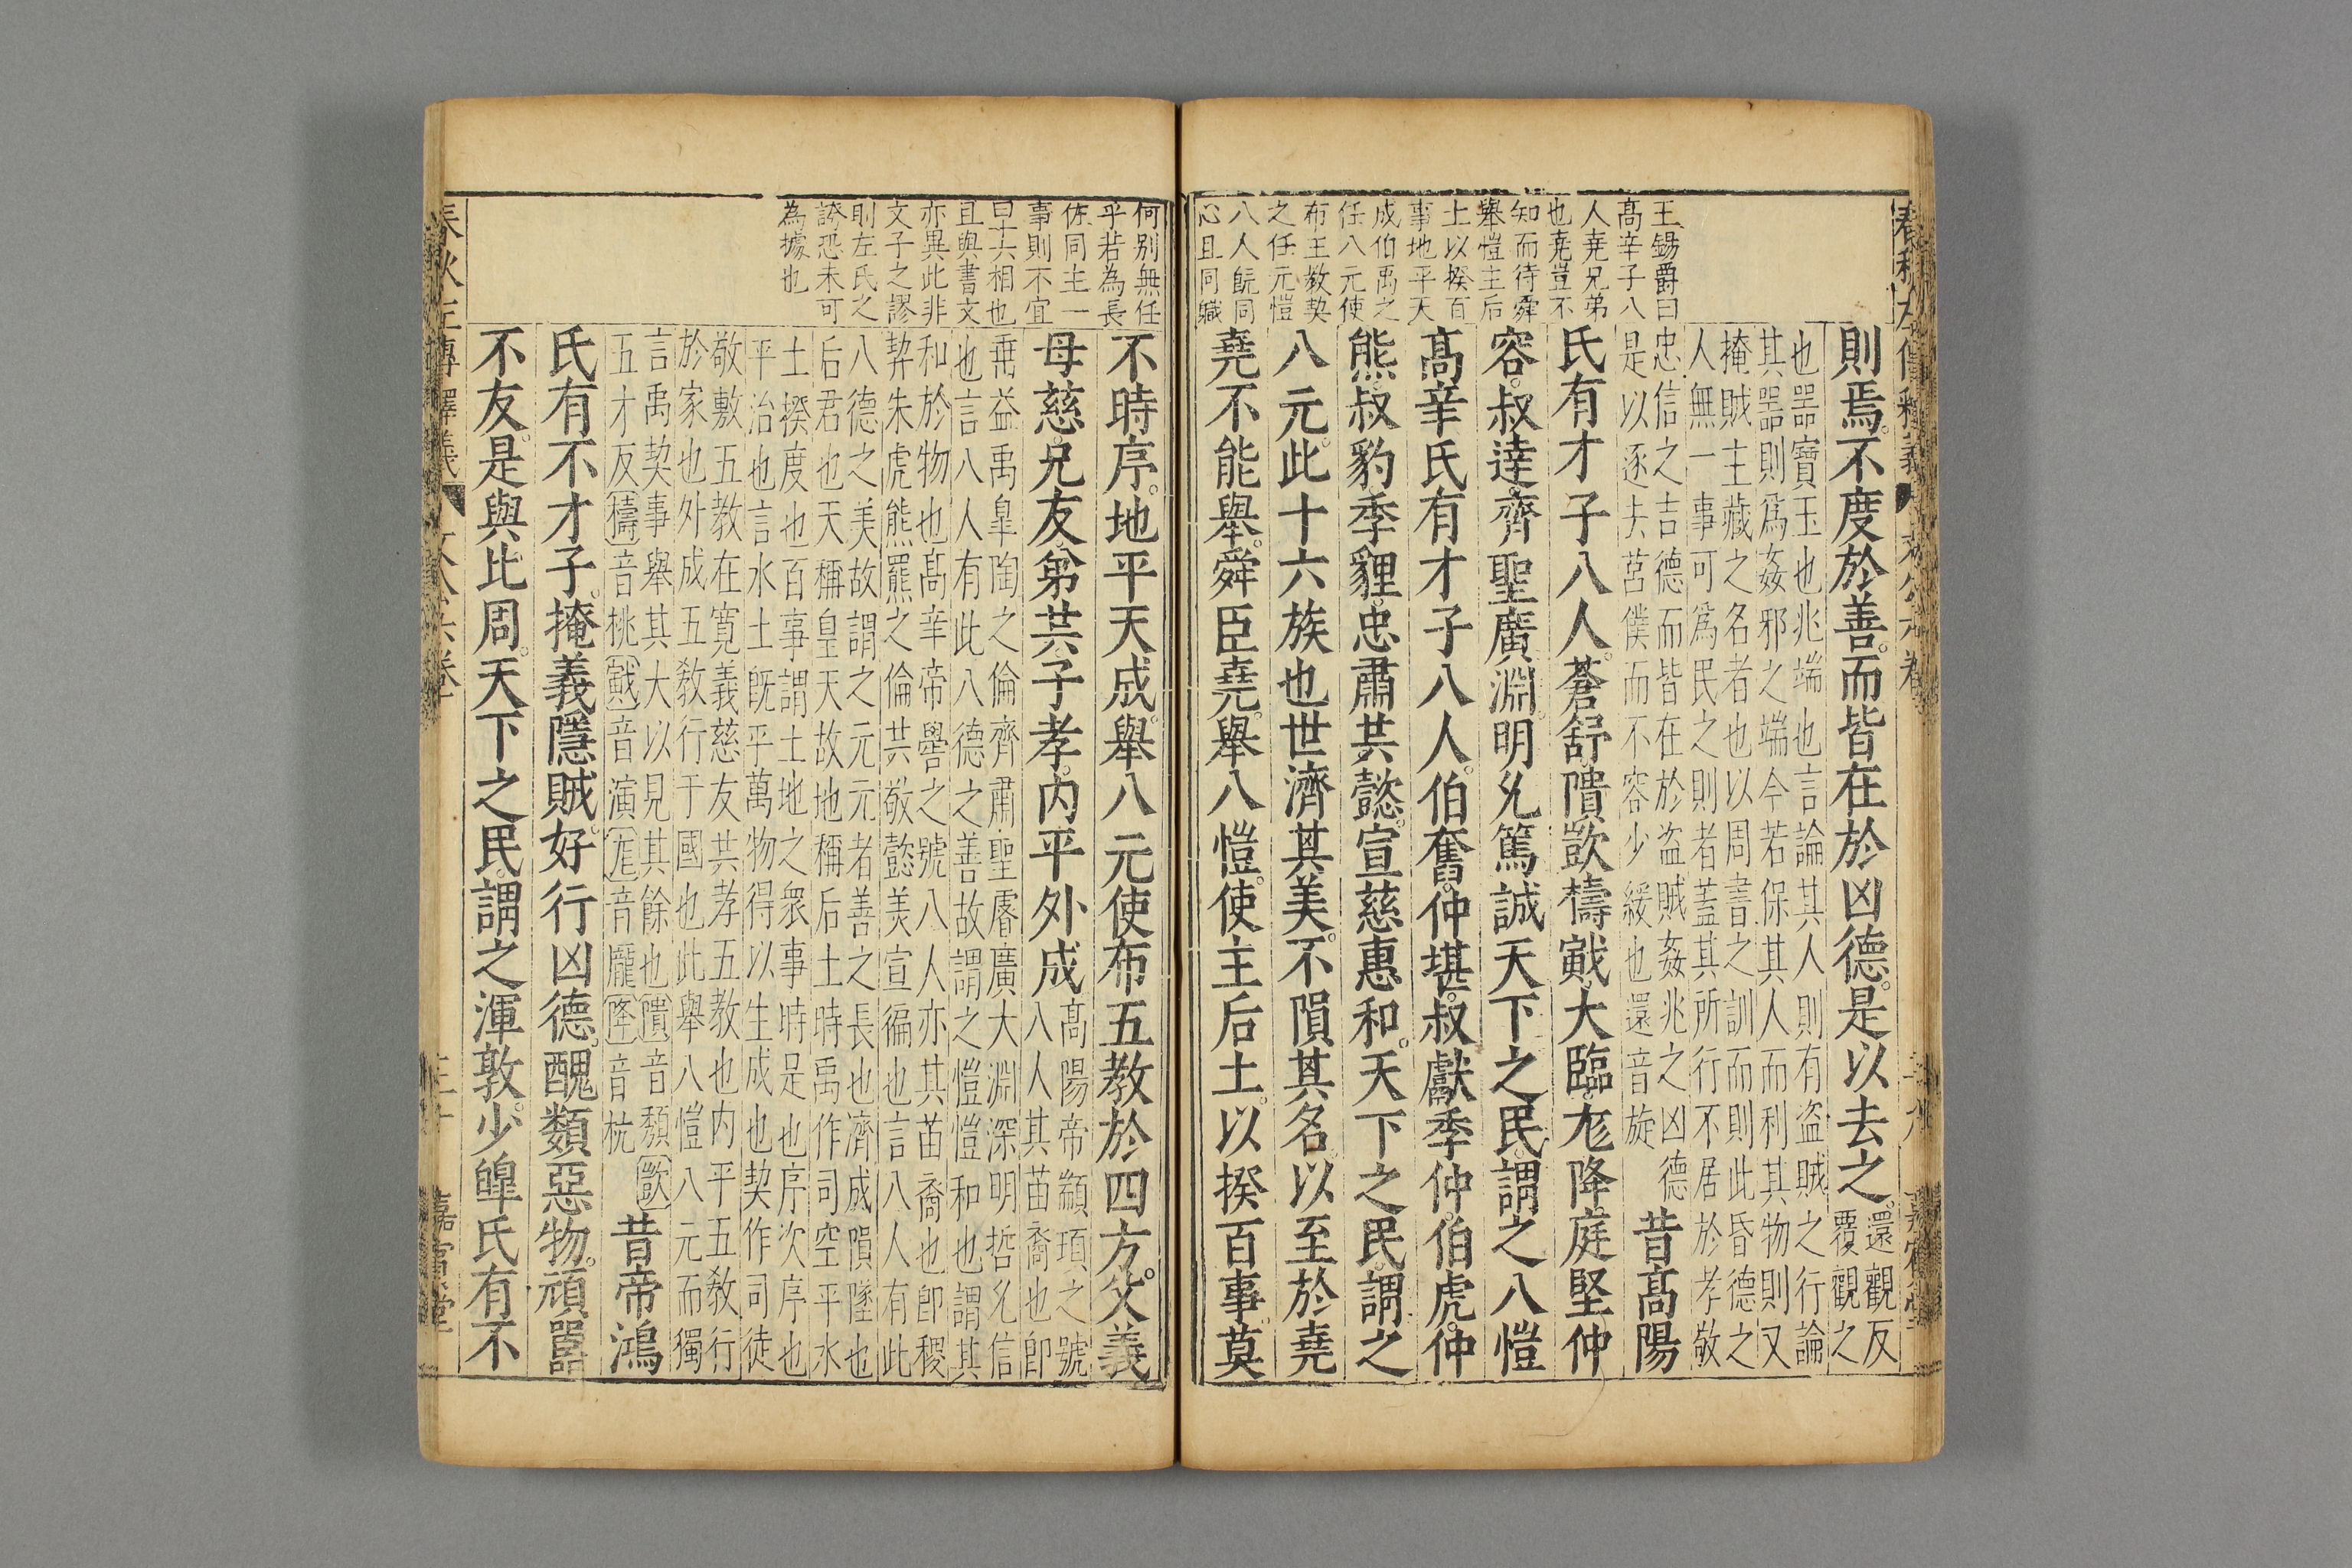 王錫爵曰
高辛子八
人堯兄弟
也堯豈不
知而待舜
舉愷主后
土以揆百
事地平天
成伯禹之
任八元使
布主教契
之任元愷
八人旣同
心且同職
則焉不度於善而皆在於凶德是以去之還觀反
覆觀之
也器寶玉也兆端也言論其人則有盜賊之行論
其器則爲姦邪之端今若保其人而利其物則又
掩賊主藏之名者也以周書之訓而則此昏德之
人無一事可爲民之則者蓋其所行不居於孝敬
忠信之吉德而皆在於盜賊姦兆之凶德
是以逐去莒僕而不容少緩也還音旋
昔高陽
氏有才子八人蒼舒隤敳檮戭大臨尨降庭堅仲
容叔達齊聖廣淵明允篤誠天下之民謂之八愷
高辛氏有才子八人伯奮仲堪叔獻季仲伯虎仲
熊叔豹季貍忠肅共懿宣慈惠和天下之民謂之
八元此十六族也世濟其美不隕其名以至於堯
堯不能舉舜臣堯舉八愷使主后土以揆百事莫
何別無任
乎若為長
佐同主一
事則不宜
曰十六相也
且與書文
亦異此非
文子之謬
則左氏之
誇恐未可
為據也
不時序地平天成舉八元使布五教於四方父義
母慈兄友弟共子孝內平外成
高陽帝顓頊之號
八人其苗裔也即
垂益禹皐陶之倫齊肅聖睿廣大淵深明哲允信
也言八人有此八德之善故謂之愷愷和也謂其
和於物也高辛帝嚳之號八人亦其苗裔也即稷
契朱虎熊羆之倫共敬懿美宣徧也言八人有此
八德之美故謂之元元者善之長也濟成隕墜也
后君也天稱皇天故地稱后土時禹作司空平水
土揆度也百事謂土地之衆事時是也序次序也
平治也言水土旣平萬物得以生成也契作司徒
敬敷五教在寬義慈友共孝五教也內平五教行
於家也外成五教行于國也此舉八愷八元而獨
言禹契事舉其大以見其餘也隤音頹敳
五才反檮音桃戭音演尨音龐降音杭
昔帝鴻
氏有不才子掩義隱賊好行凶德醜類惡物頑嚚
不友是與比周天下之民謂之渾敦少皥氏有不